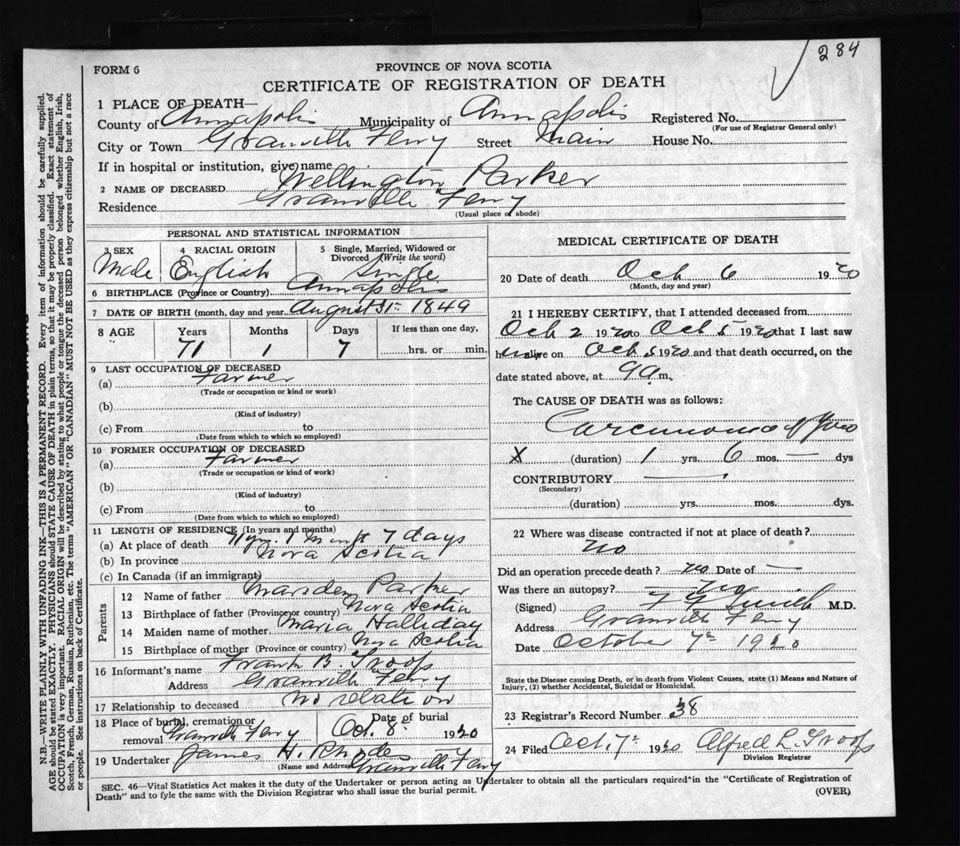 284
FORM 6
PROVINCE OF NOVA SCOTIA
CERTIFICATE OF REGISTRATION OF DEATH
1 PLACE OF DEATH—
County of Annapolis Municipality of Annapolis Registered No.
(For use of Registrar General only)
City or Town Granville Ferry Street Main House No.
If in hospital or institution, give name
2 NAME OF DECEASED Wellington Parker
Residence Granville Ferry
(Usual place of abode)
PERSONAL AND STATISTICAL INFORMATION
3 SEX 4 RACIAL ORIGIN 5 Single, Married, Widowed or Divorced (Write the word)
Male English Single
6 BIRTHPLACE (Province or Country) Annapolis
7 DATE OF BIRTH (month, day and year) August 31st 1849
8 AGE Years Months Days If less than one day,
71 1 7 hrs. or min.
9 LAST OCCUPATION OF DECEASED
(a) Farmer
(Trade or occupation or kind or work)
(b)
(Kind of industry)
(c) From to
(Date from which to which so employed)
10 FORMER OCCUPATION OF DECEASED
(a) Farmer
(Trade or occupation or kind of work)
(b)
(Kind of industry)
(c) From to
(Date from which to which so employed)
11 LENGTH OF RESIDENCE (In years and months)
(a) At place of death 71 yrs. 1 month 7 days
(b) In province Nova Scotia
(c) In Canada (if an immigrant)
Parents
12 Name of father Marsden Parker
13 Birthplace of father (Province or country) Nova Scotia
14 Maiden name of mother Maria Halliday
15 Birthplace of mother (Province or country) Nova Scotia
16 Informant's name Frank B. Troop
Address Granville Ferry
17 Relationship to deceased No relation
18 Place of burial, cremation or removal Granville Ferry Date of burial Oct. 8th 1920
19 Undertaker James H. Rhodes
(Name and Address) Granville Ferry
MEDICAL CERTIFICATE OF DEATH
20 Date of death Oct 6 1920
(Month, day and year)
21 I HEREBY CERTIFY, that I attended deceased from
Oct 2 1920 to Oct 5 1920 that I last saw
him alive on Oct 5 1920 and that death occurred, on the
date stated above, at 9 a m.
The CAUSE OF DEATH was as follows:
Carcinoma of
X (duration) 1 yrs. 6 mos. — dys
CONTRIBUTORY —
(Secondary)
(duration) yrs. mos. dys.
22 Where was disease contracted if not at place of death?
no
Did an operation precede death? no Date of —
Was there an autopsy? no
(Signed) Smith M.D.
Address Granville Ferry
Date October 7th 1920
State the Disease causing Death, or in death from Violent Causes, state (1) Means and Nature of
Injury, (2) whether Accidental, Suicidal or Homicidal.
23 Registrar's Record Number 38
24 Filed Oct. 7th 1920 Alfred L. Troop
Division Registrar
SEC. 46—Vital Statistics Act makes it the duty of the Undertaker or person acting as Undertaker to obtain all the particulars required in the "Certificate of Registration of
Death" and to fyle the same with the Division Registrar who shall issue the burial permit.
(OVER)
N.B.—WRITE PLAINLY WITH UNFADING INK—THIS IS A PERMANENT RECORD. Every item of information should be carefully supplied.
AGE should be stated EXACTLY. PHYSICIANS should STATE CAUSE OF DEATH in plain terms, so that it may be properly classified. Exact statement of
OCCUPATION is very important. RACIAL ORIGIN will be described by stating to what people or tongue the deceased person belonged whether English, Irish,
Scotch, French, German, Russian, Ruthenian, etc. The terms "AMERICAN" OR "CANADIAN" MUST NOT BE USED as they express citizenship but not a race
or people. See instructions on back of Certificate.